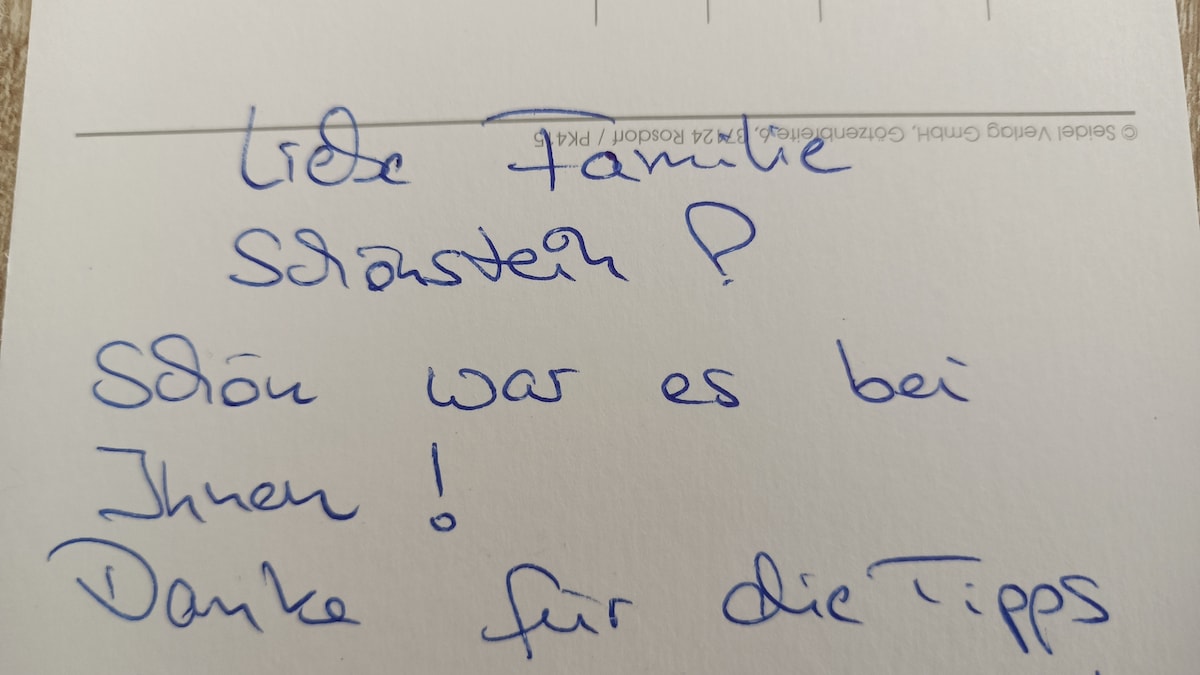 © Seidel Verlag GmbH, Götzenbreite 6, 37124 Rosdorf / PK415
Liebe Familie
Schönstein ?
Schön war es bei
Ihnen !
Danke für die Tipps